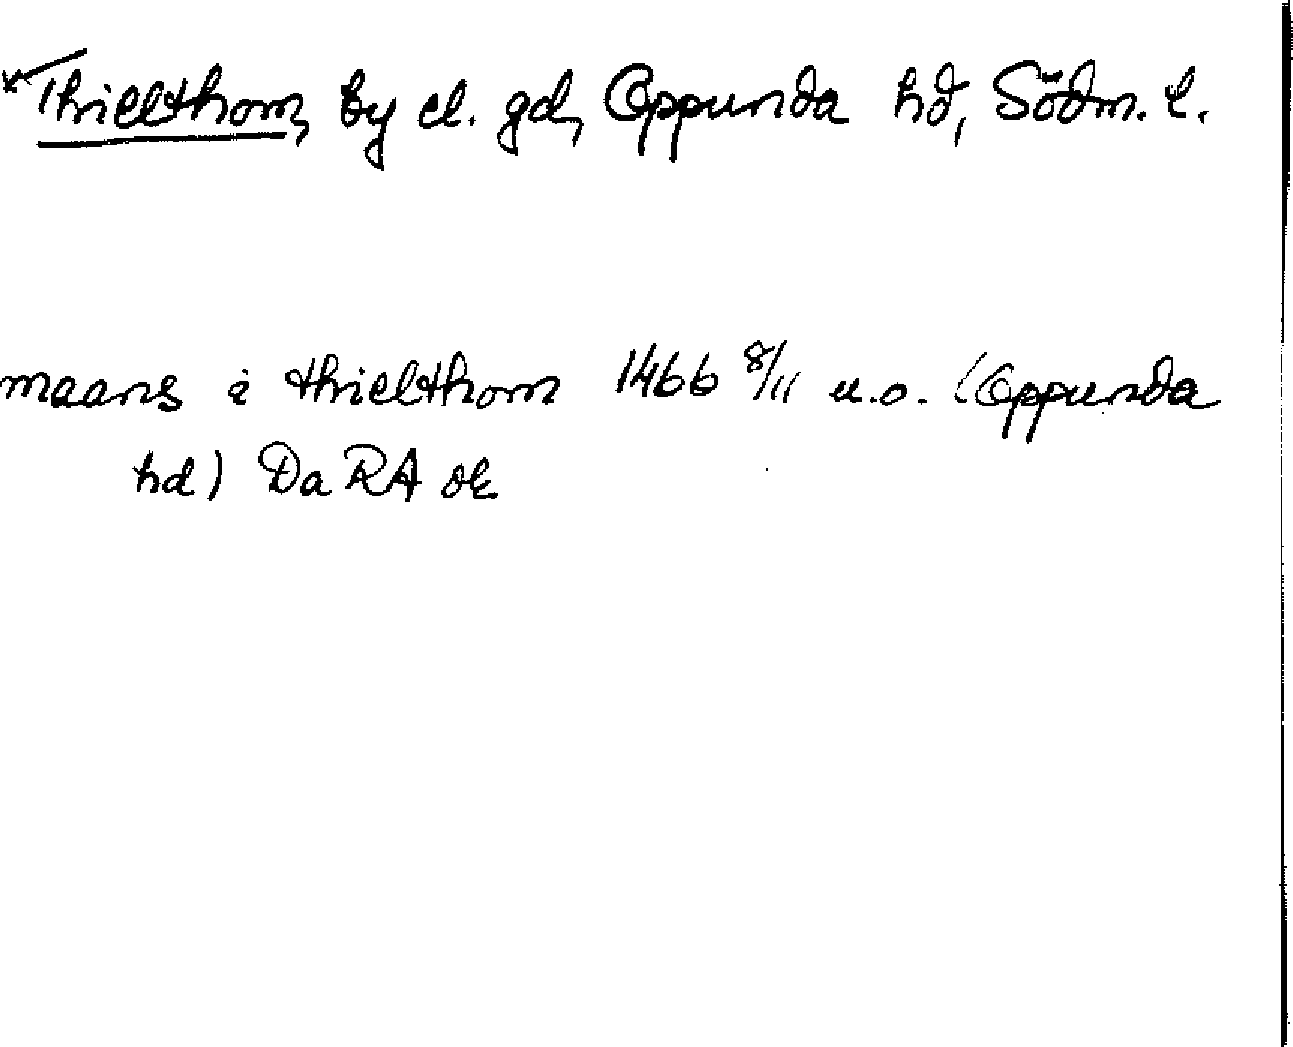 Thrielthom, by el. gd, Oppunda hd, Södm. l.
maans i thrielthom 1466 8/11 u.o. (Oppunda
hd) Da RA ok